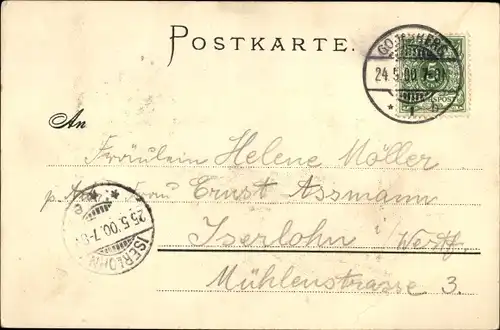 POSTKARTE.
GODESBERG
24.5.00.7-8
REICHSPOST
An
Fräulein Helene Möller
p. Adr. Frau Ernst Assmann
Iserlohn i/Westf.
Mühlenstrasse 3.
ISERLOHN
25.5.00.7-8